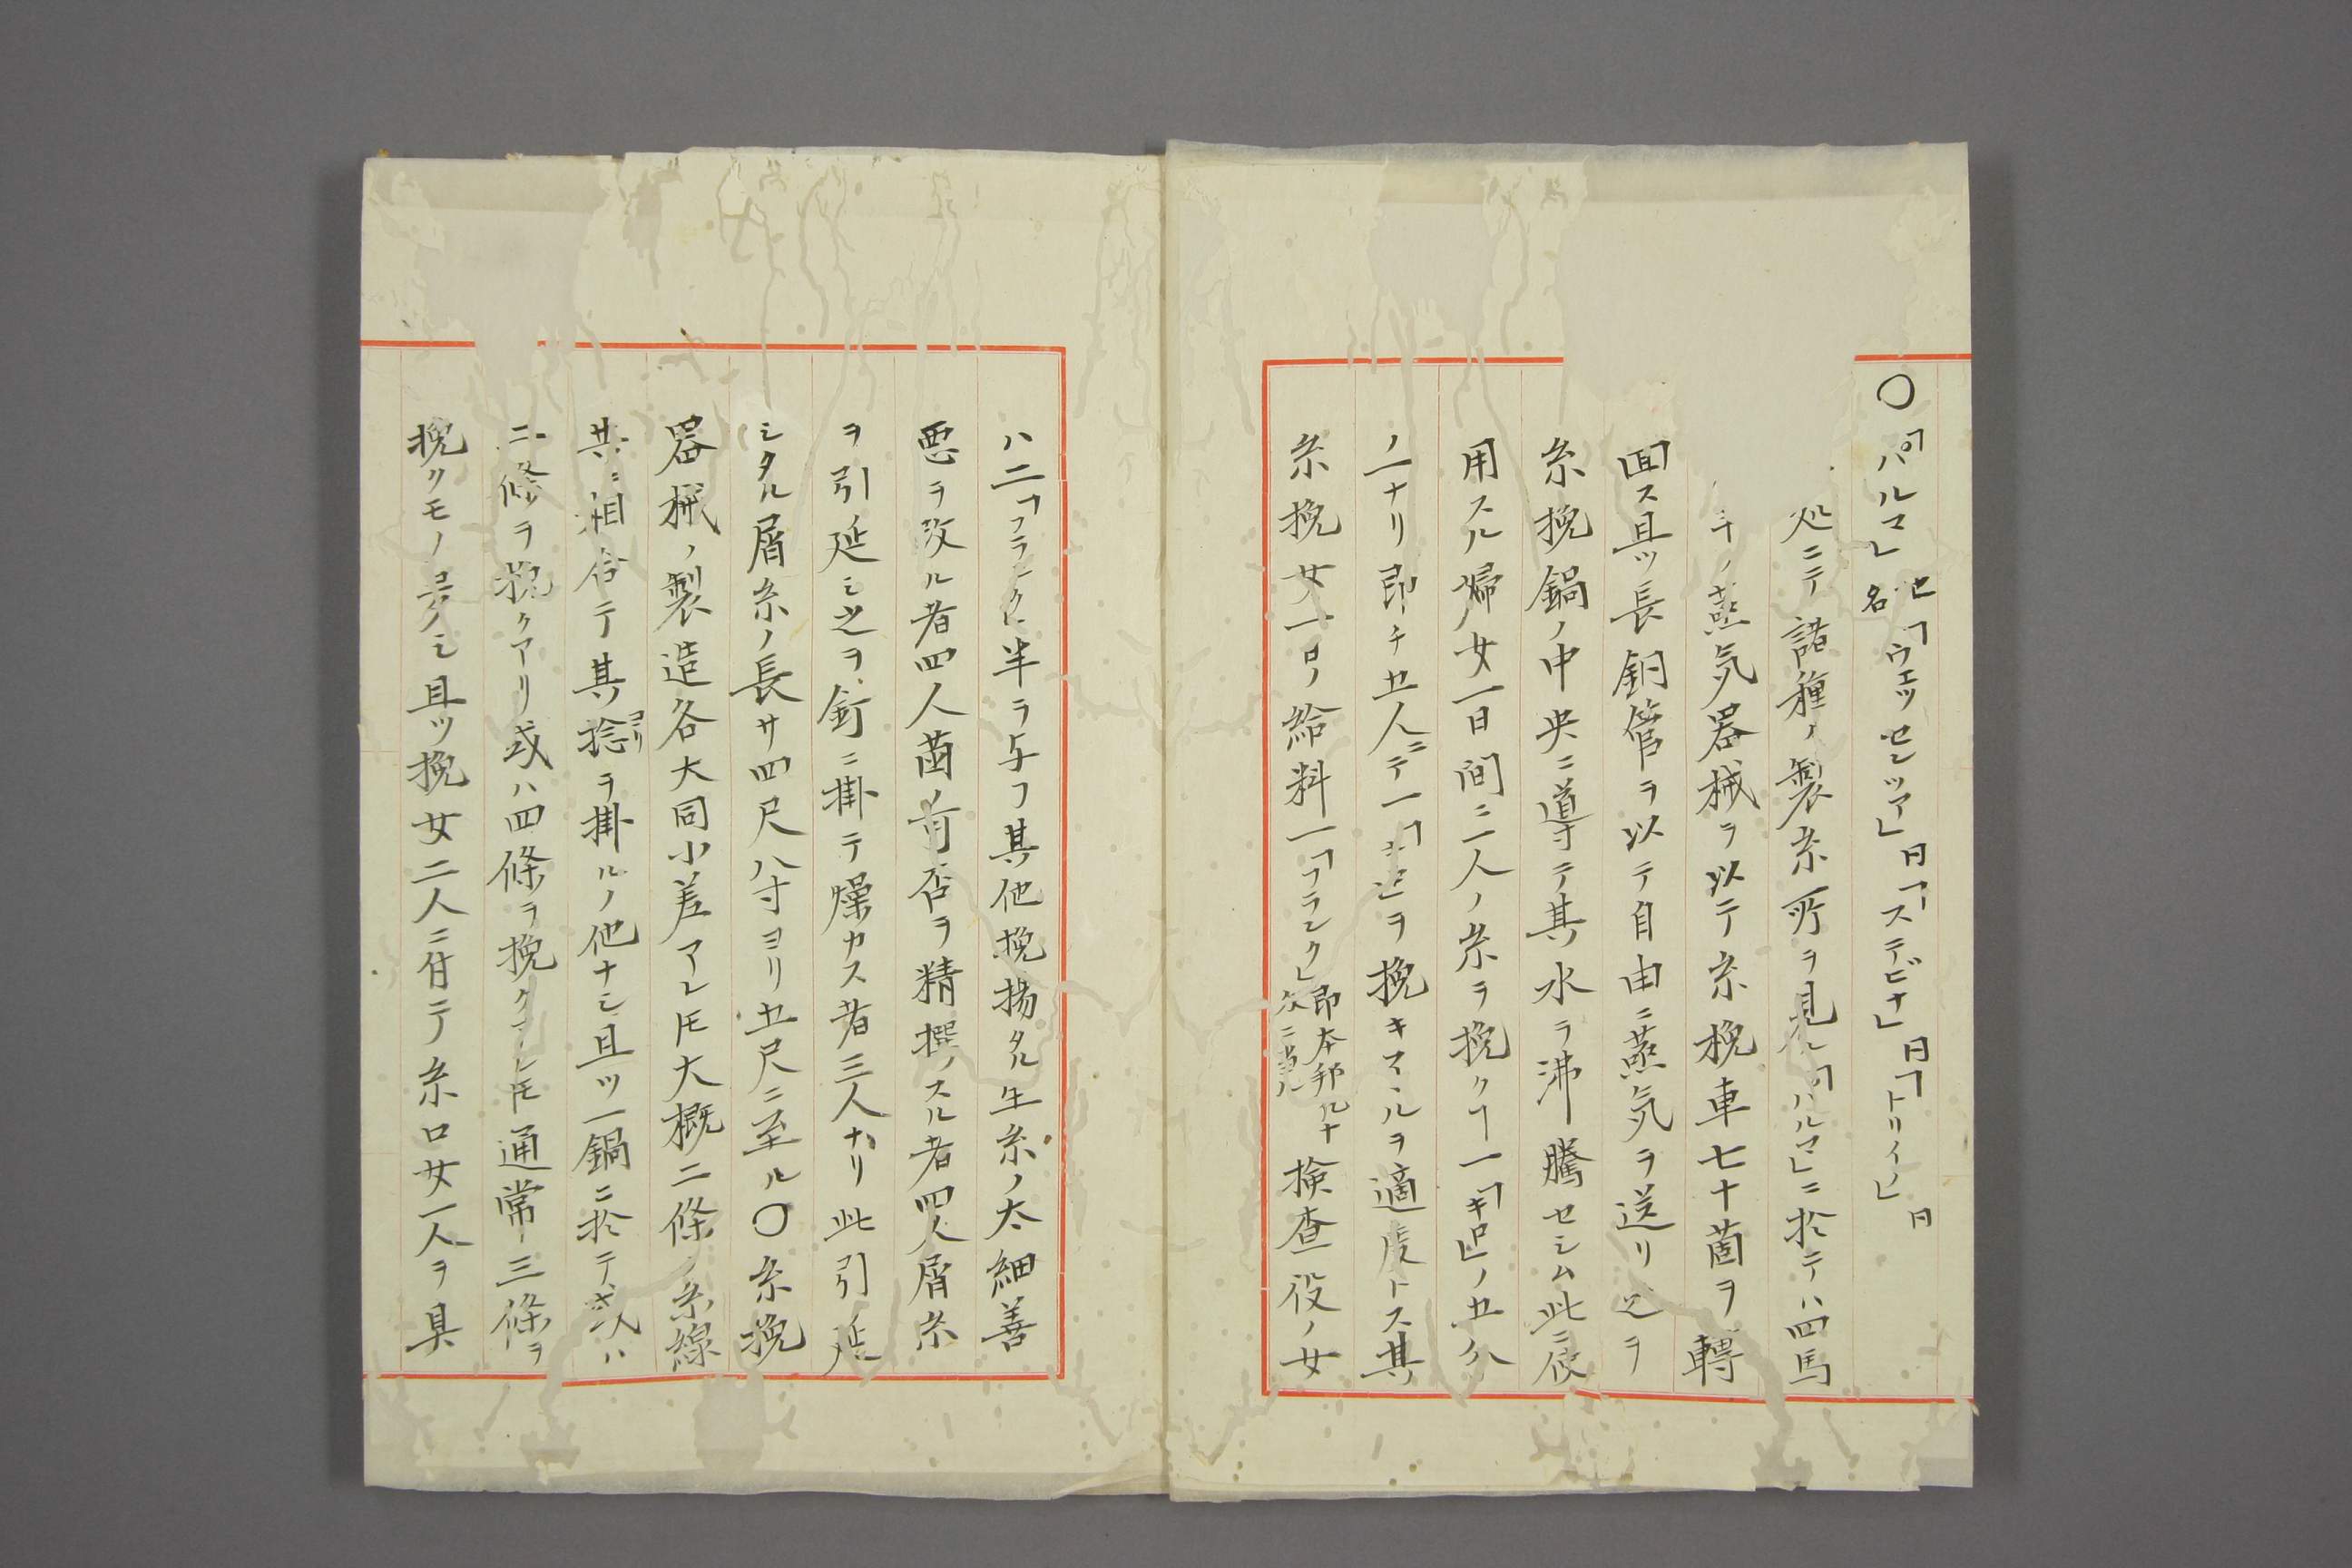 〇「パルマ」地名「ウェツセンツア」同「ステビナ」同「トリイノ」同
処ニテ諸種ノ製糸所ヲ見ル「パルマ」ニ於テハ四馬
ノ蒸気器械ヲ以テ糸挽車七十箇ヲ轉
回ス且ツ長銅管ヲ以テ自由ニ蒸気ヲ送リ之ヲ
糸挽鍋ノ中央ニ導テ其水ヲ沸騰セシム此ニ役
用スル婦女一日間ニ一人ノ糸ヲ挽クヿ一「キロ」ノ五分
ノ一ナリ即チ五人ニテ一「キロ」ヲ挽キマルヲ適度トス其
糸挽女一日ノ給料一「フランク」即本邦凡十次ニ当ル検査役ノ女
ハ二「フランク」半ヲ与フ其他挽揚タル生糸ノ太細善
悪ヲ改ル者四人繭ノ可否ヲ精撰スル者四人屑糸
ヲ引延シ之ヲ釘ニ掛テ燥カス者三人ナリ此引延
シタル屑糸ノ長サ四尺八寸ヨリ五尺ニ至ル〇糸挽
器械ノ製造各大同小差アレ𪜈大概二條ノ糸線
共ニ相合テ其捻ヨリヲ掛ルノ他ナシ且ツ一鍋ニ於テ或ハ
二條ヲ挽クアリ或ハ四條ヲ挽クアレ𪜈通常三條ヲ
挽クモノ多シ且ツ挽女二人ニ付テ糸口女一人ヲ具